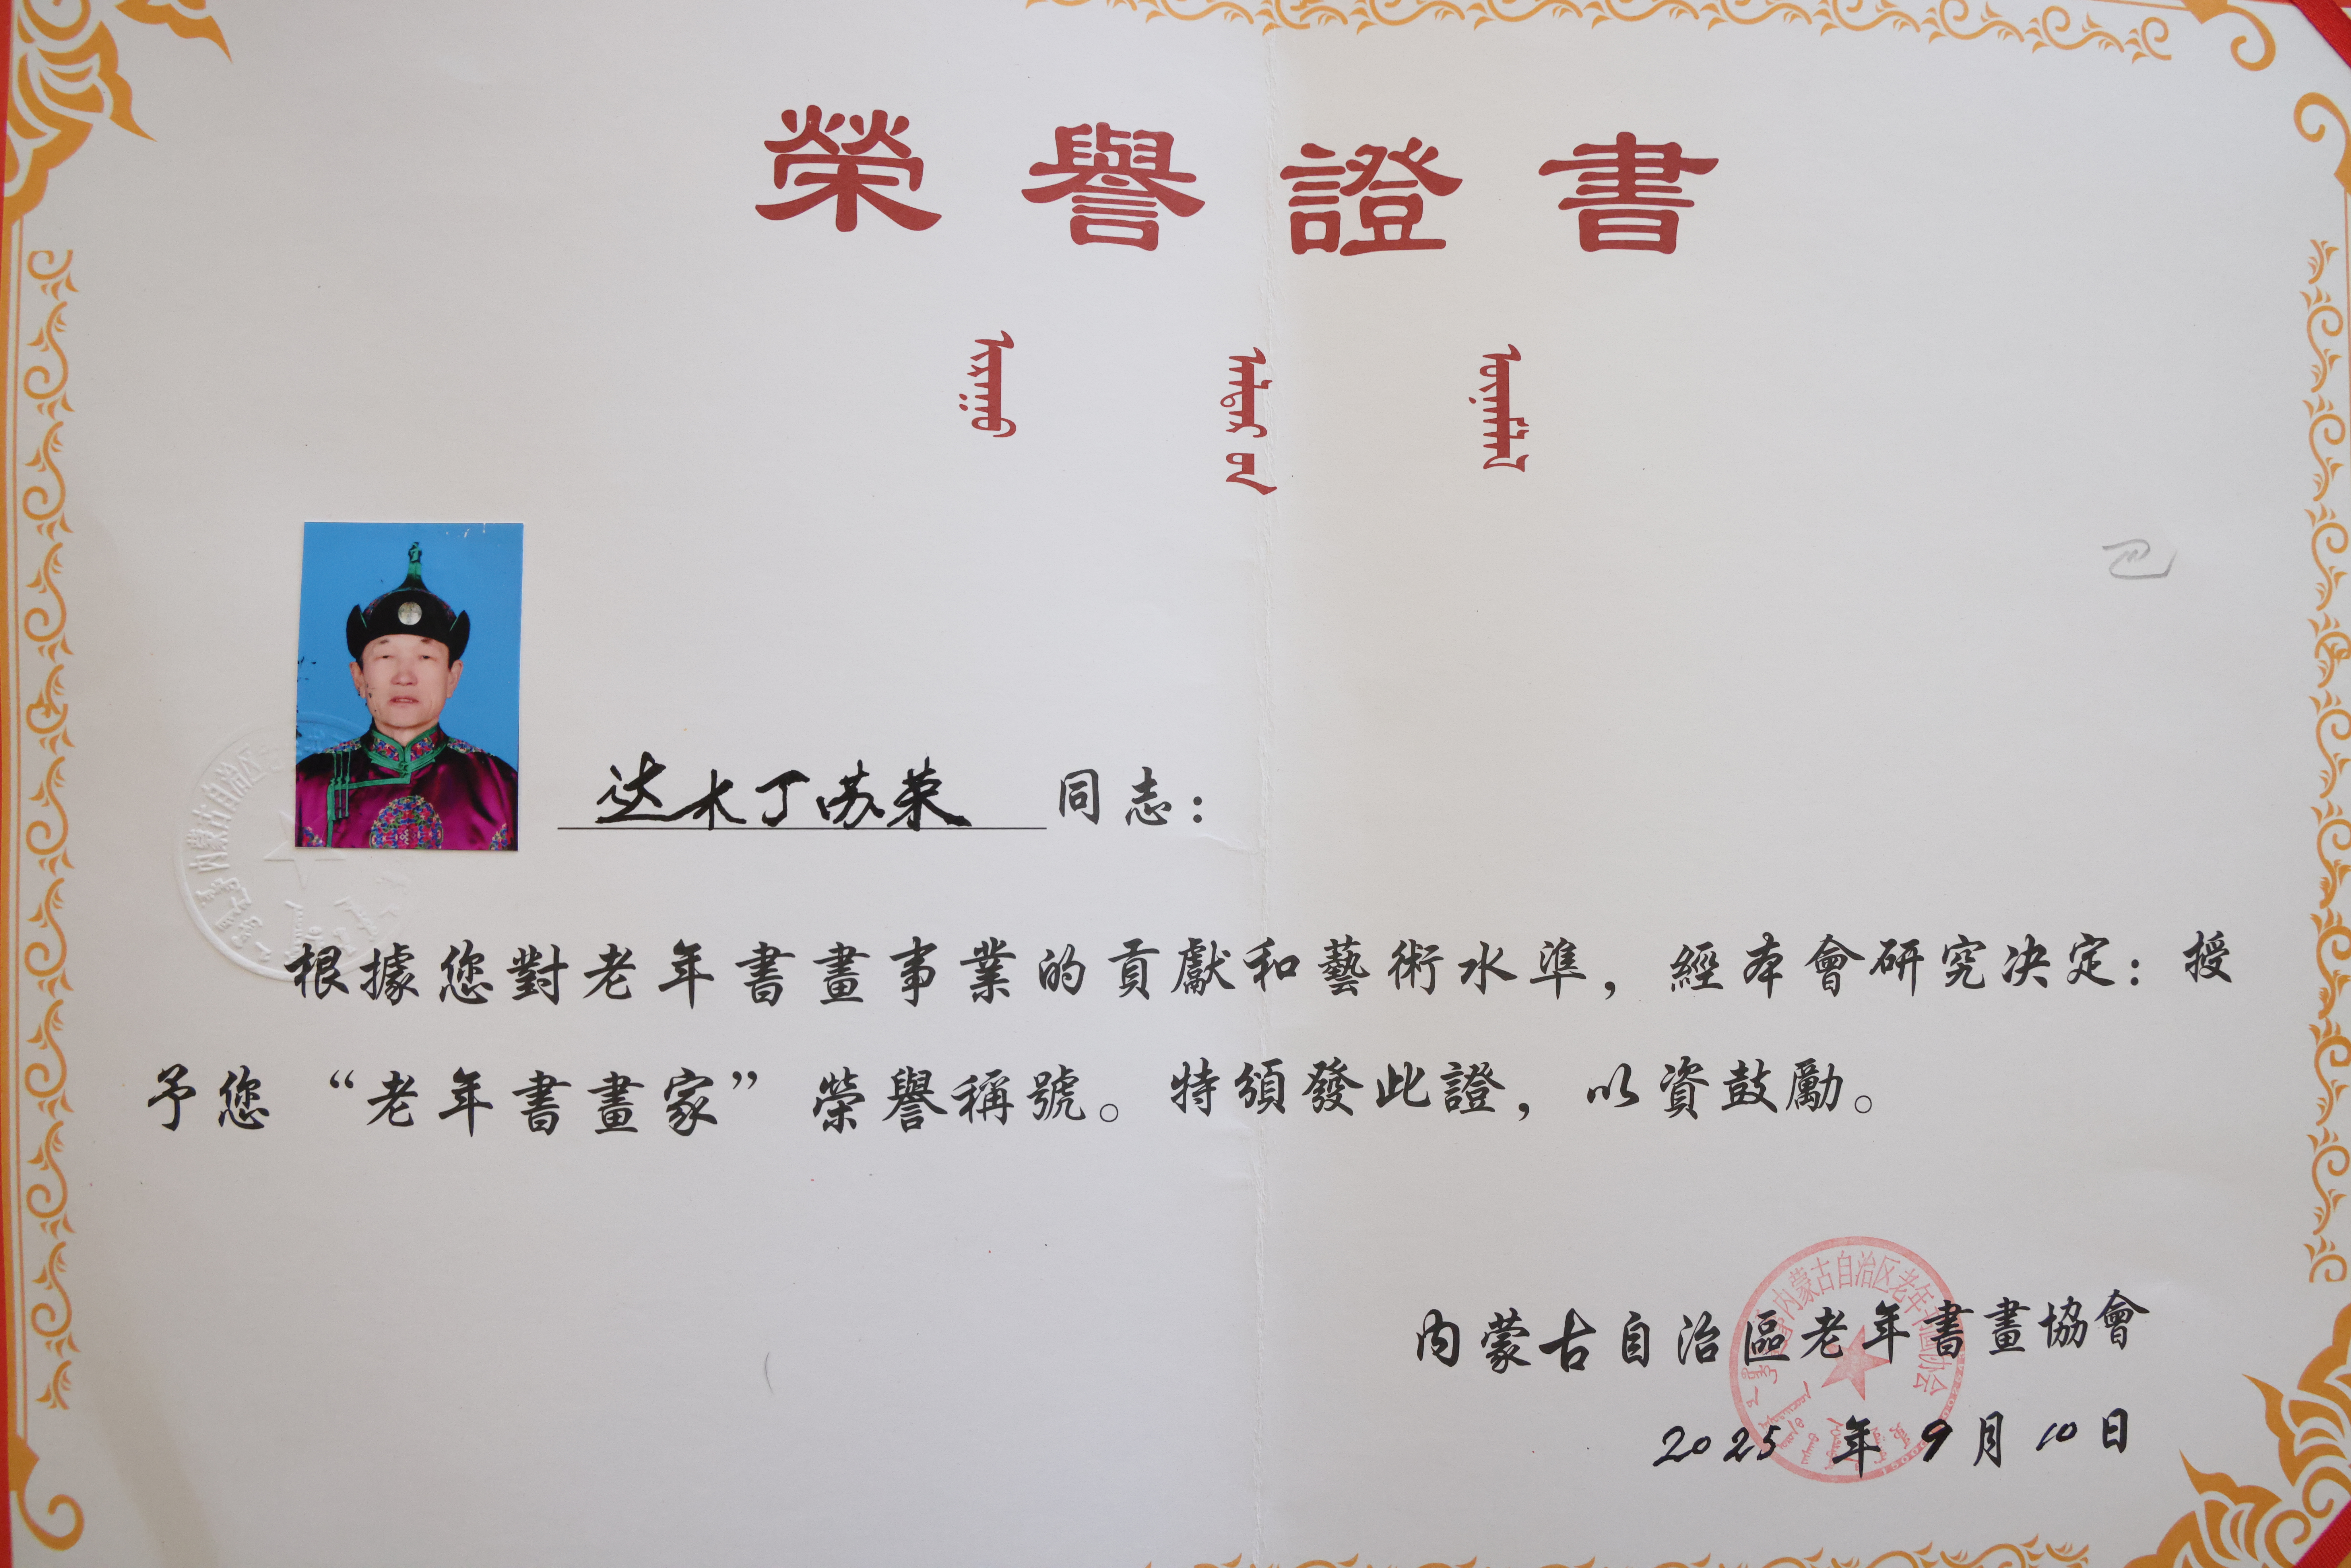 榮譽證書
达木丁苏荣 同志：
根據您對老年書畫事業的貢獻和藝術水準，經本會研究决定：授
予您“老年書畫家”榮譽稱號。特頒發此證，以資鼓勵。
内蒙古自治區老年書畫協會
2025年9月10日
内蒙古自治区老年书画协会
内蒙古自治区